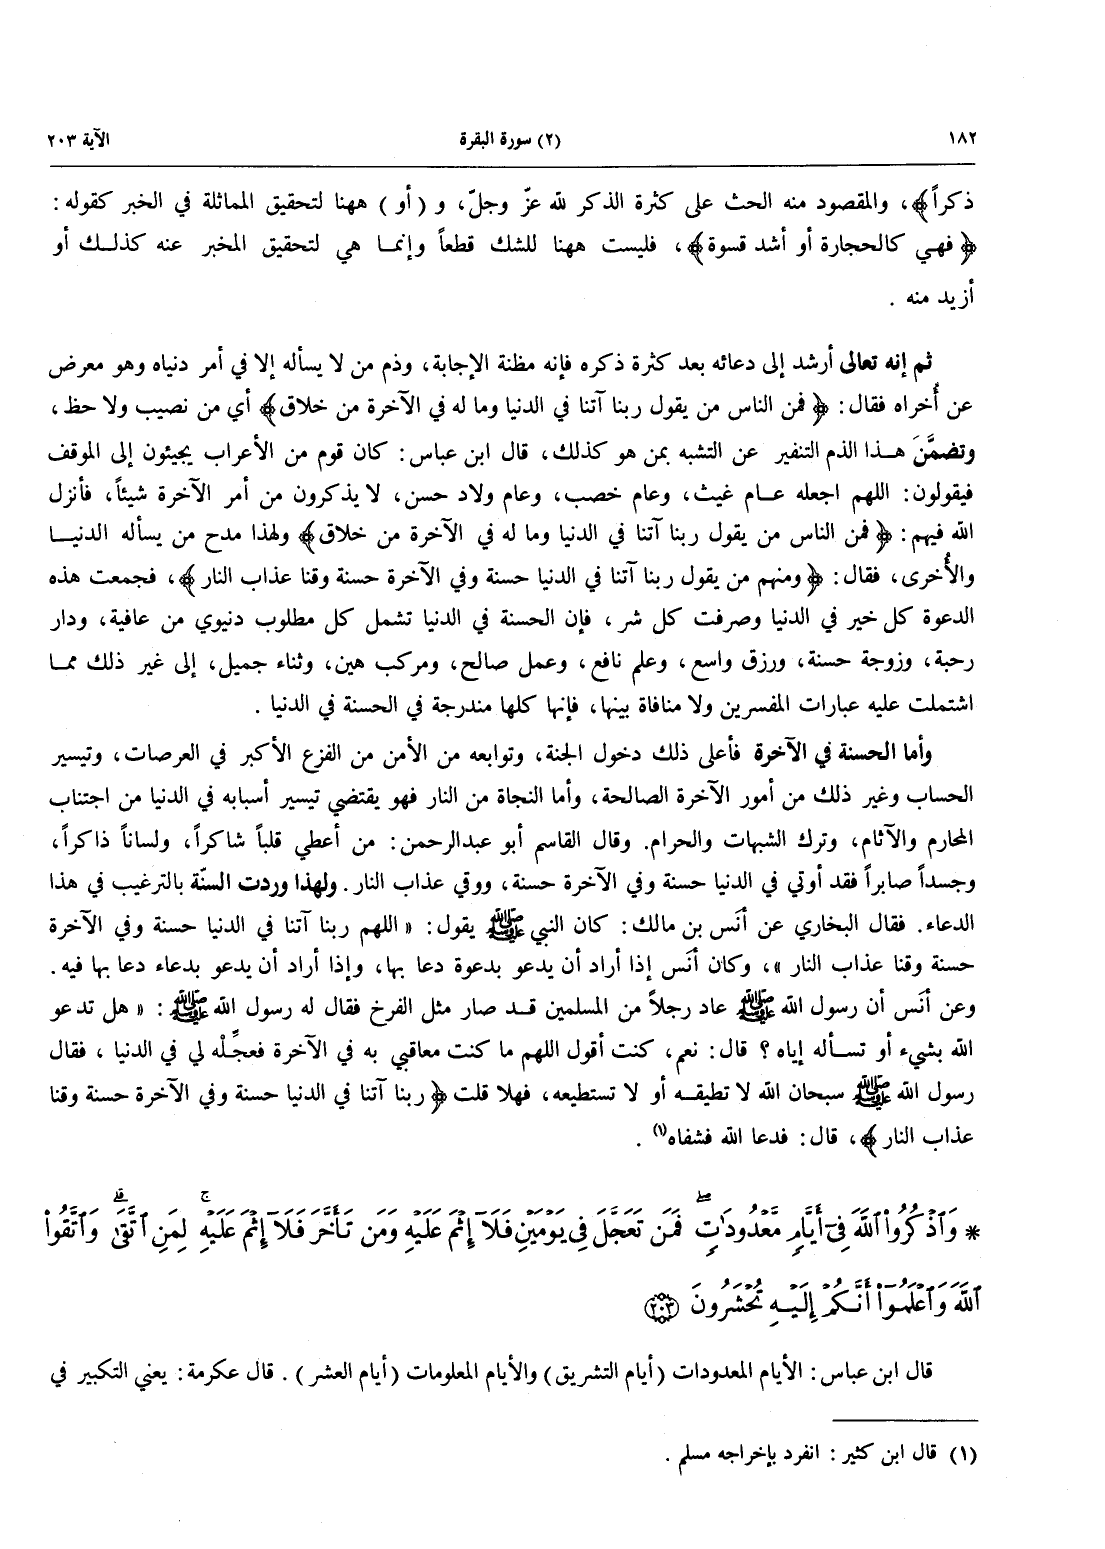 ١٨٢ (٢) سورة البقرة الآية ٢٠٣
ذكراً﴾، والمقصود منه الحث على كثرة الذكر لله عزّ وجلّ، و (أو) ههنا لتحقيق المماثلة في الخبر كقوله :
﴿ فهي كالحجارة أو أشد قسوة﴾، فليست ههنا للشك قطعاً وإنما هي لتحقيق المخبر عنه كذلك أو
أزيد منه .
ثم إنه تعالى أرشد إلى دعائه بعد كثرة ذكره فإنه مظنة الإجابة، وذم من لا يسأله إلا في أمر دنياه وهو معرض
عن أُخراه فقال : ﴿ فمن الناس من يقول ربنا آتنا في الدنيا وما له في الآخرة من خلاق﴾ أي من نصيب ولا حظ،
وتضمَّنَ هذا الذم التنفير عن التشبه بمن هو كذلك، قال ابن عباس : كان قوم من الأعراب يجيئون إلى الموقف
فيقولون : اللهم اجعله عام غيث، وعام خصب، وعام ولاد حسن، لا يذكرون من أمر الآخرة شيئاً، فأنزل
الله فيهم : ﴿ فمن الناس من يقول ربنا آتنا في الدنيا وما له في الآخرة من خلاق﴾ ولهذا مدح من يسأله الدنيا
والأُخرى، فقال : ﴿ ومنهم من يقول ربنا آتنا في الدنيا حسنة وفي الآخرة حسنة وقنا عذاب النار ﴾، فجمعت هذه
الدعوة كل خير في الدنيا وصرفت كل شر ، فإن الحسنة في الدنيا تشمل كل مطلوب دنيوي من عافية، ودار
رحبة، وزوجة حسنة، ورزق واسع، وعلم نافع، وعمل صالح، ومركب هين، وثناء جميل، إلى غير ذلك مما
اشتملت عليه عبارات المفسرين ولا منافاة بينها، فإنها كلها مندرجة في الحسنة في الدنيا .
وأما الحسنة في الآخرة فأعلى ذلك دخول الجنة، وتوابعه من الأمن من الفزع الأكبر في العرصات، وتيسير
الحساب وغير ذلك من أمور الآخرة الصالحة، وأما النجاة من النار فهو يقتضي تيسير أسبابه في الدنيا من اجتناب
المحارم والآثام، وترك الشبهات والحرام. وقال القاسم أبو عبدالرحمن : من أعطي قلباً شاكراً، ولساناً ذاكراً،
وجسداً صابراً فقد أوتي في الدنيا حسنة وفي الآخرة حسنة، ووقي عذاب النار . ولهذا وردت السنّة بالترغيب في هذا
الدعاء. فقال البخاري عن أنَس بن مالك : كان النبي ﷺ يقول : « اللهم ربنا آتنا في الدنيا حسنة وفي الآخرة
حسنة وقنا عذاب النار »، وكان أنَس إذا أراد أن يدعو بدعوة دعا بها، وإذا أراد أن يدعو بدعاء دعا بها فيه.
وعن أنَس أن رسول الله ﷺ عاد رجلاً من المسلمين قد صار مثل الفرخ فقال له رسول الله ﷺ : « هل تدعو
الله بشيء أو تسأله إياه ؟ قال : نعم، كنت أقول اللهم ما كنت معاقبي به في الآخرة فعجِّلْه لي في الدنيا ، فقال
رسول الله ﷺ سبحان الله لا تطيقه أو لا تستطيعه، فهلا قلت ﴿ ربنا آتنا في الدنيا حسنة وفي الآخرة حسنة وقنا
عذاب النار ﴾، قال : فدعا الله فشفاه(١) .
* وَٱذْكُرُوا۟ ٱللَّهَ فِىٓ أَيَّامٍ مَّعْدُودَٰتٍ ۖ فَمَن تَعَجَّلَ فِى يَوْمَيْنِ فَلَآ إِثْمَ عَلَيْهِ وَمَن تَأَخَّرَ فَلَآ إِثْمَ عَلَيْهِ ۚ لِمَنِ ٱتَّقَىٰ ۗ وَٱتَّقُوا۟
ٱللَّهَ وَٱعْلَمُوٓا۟ أَنَّكُمْ إِلَيْهِ تُحْشَرُونَ ﴿٢٠٣﴾
قال ابن عباس : الأيام المعدودات (أيام التشريق) والأيام المعلومات (أيام العشر) . قال عكرمة : يعني التكبير في
(١) قال ابن كثير : انفرد بإخراجه مسلم .